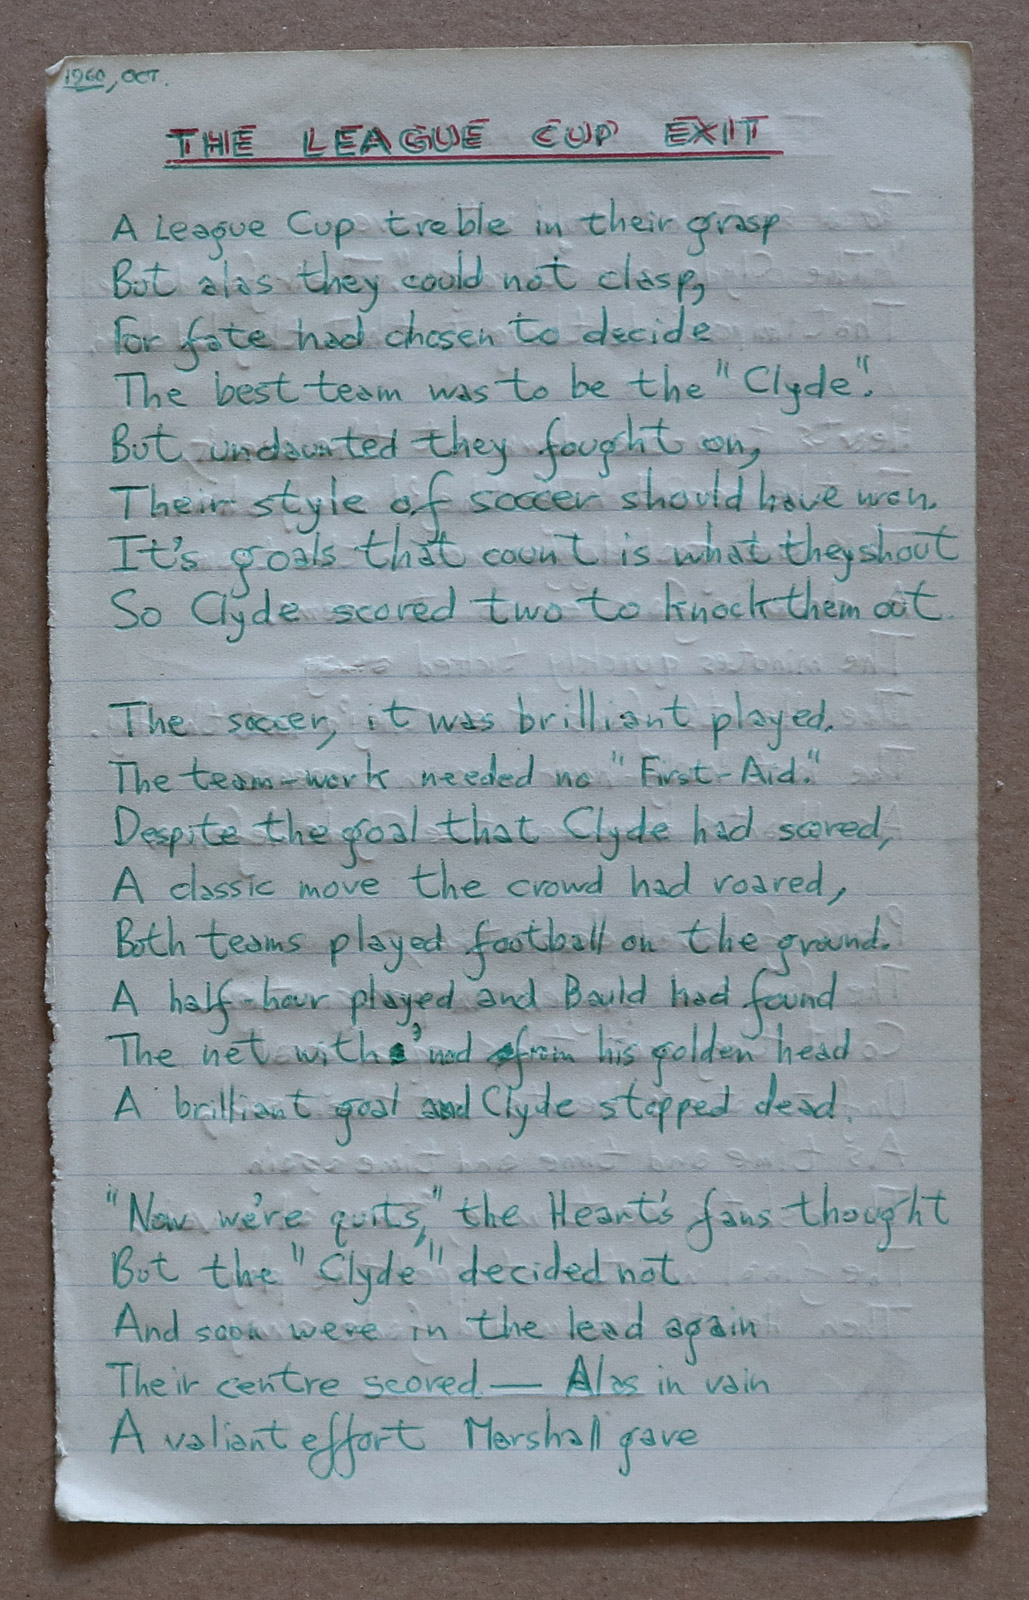 1960, OCT.
THE LEAGUE CUP EXIT
A League Cup treble in their grasp
But alas they could not clasp,
For fate had chosen to decide
The best team was to be the "Clyde".
But undaunted they fought on,
Their style of soccer should have won.
It's goals that count is what they shout
So Clyde scored two to knock them out.
The soccer, it was brilliant played.
The team-work needed no "First-Aid."
Despite the goal that Clyde had scored,
A classic move the crowd had roared,
Both teams played football on the ground.
A half-hour played and Bauld had found
The net with 'nod from his golden head
A brilliant goal and Clyde stopped dead.
"Now we're quits," the Heart's fans thought
But the "Clyde" decided not
And soon were in the lead again
Their centre scored — Alas in vain
A valiant effort Marshall gave